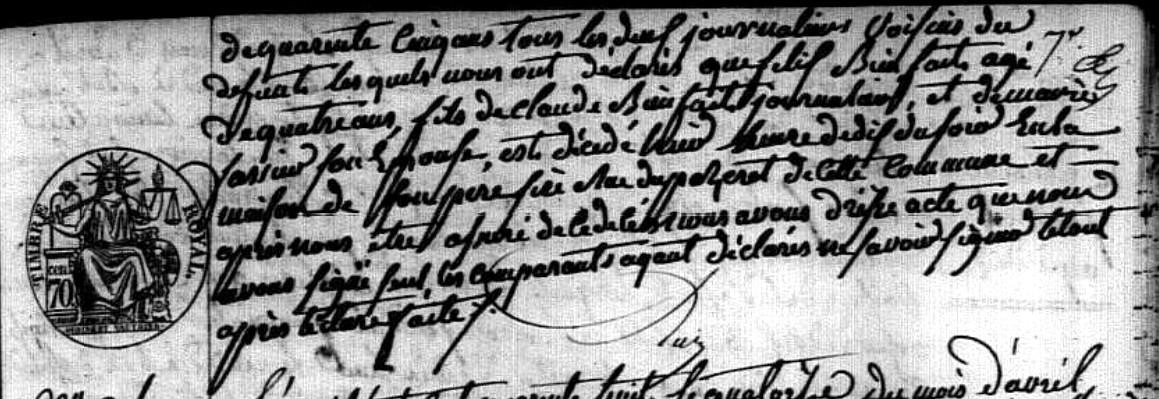 de quarente cinq ans tous les deux journaliers voisins du
defunts lesquels nous ont déclarés que felix Bienfaits agé 7r
de quatre ans, fils de Claude Bienfaits journalier, et de marie
son Epouse, est décédé heure de dix du soir En la
maison de son père rue du de cette Commune et
après nous être assuré de ce décès nous avons drésse acte que nous
avons signé seul les comparants ayant déclarés ne savoir signer le tout
après lecture faite
TIMBRE ROYAL
70
huit le quatorze du mois d'avril